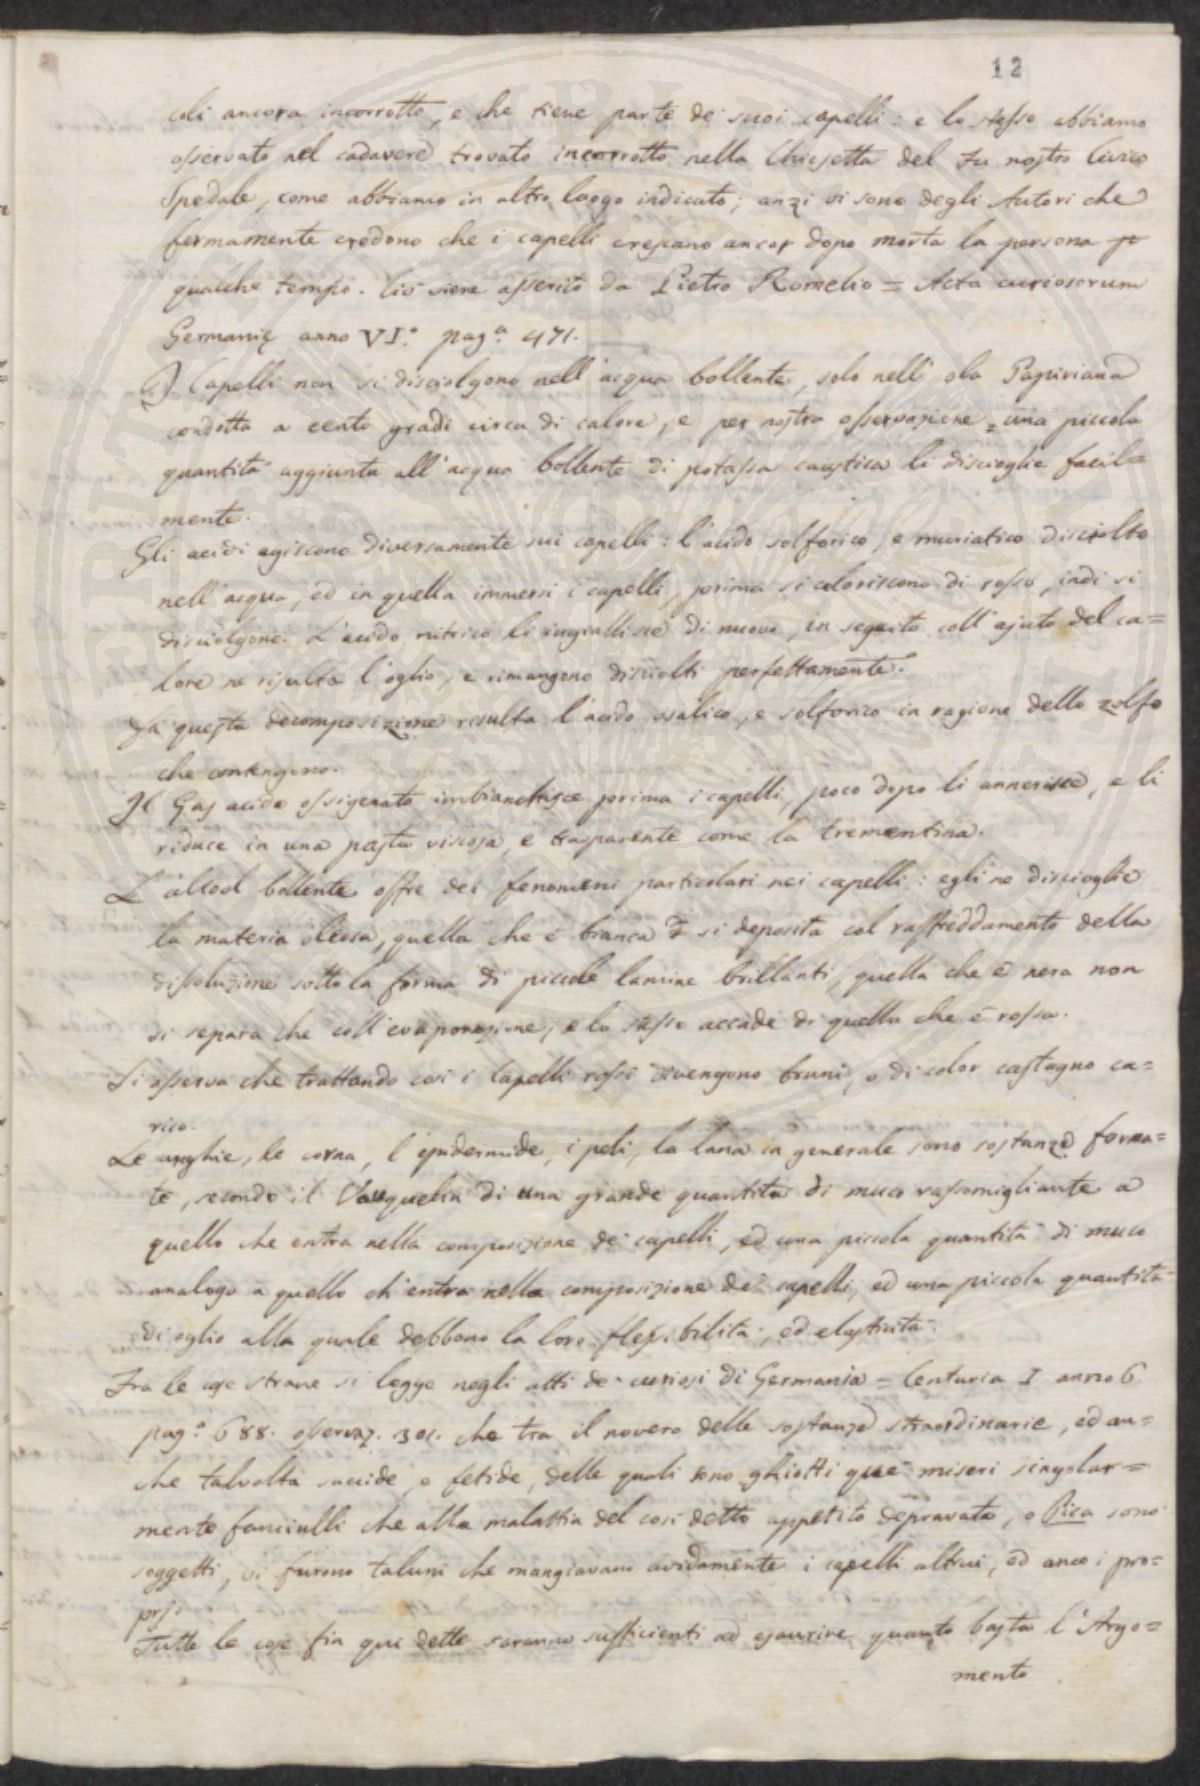 12
coli ancora incorrotto, e che tiene parte de' suoi capelli: e lo stesso abbiamo
osservato nel cadavere trovato incorrotto nella Chiesetta del fu nostro Civico
Spedale, come abbiamo in altro luogo indicato; anzi vi sono degli Autori che
fermamente credono che i capelli crescano ancor dopo morta la persona p
qualche tempo. Ciò viene asserito da Pietro Romelio = Acta curiosorum
Germaniȩ anno VI.° pag.ª 471.
Capelli non si disciolgono nell' acqua bollente, solo nell' ola Papiriana
condotta a cento gradi circa di calore, e per nostra osservazione = una piccola
quantità aggiunta all' acqua bollente di potassa caustica li discioglie facil=
mente.
Gli acidi agiscono diversamente sui capelli: l'acido solforico, e muriatico disciolto
nell' acqua, ed in quella immersi i capelli, prima si coloriscono di rosso, indi si
disciolgono. L'acido nitrico li ingiallisce di nuovo, in seguito coll' ajuto del ca=
lore ne risulta l'oglio, e rimangono disciolti perfettamente.
Da questa decomposizione risulta l'acido ossalico, e solforico in ragione dello zolfo
che contengono.
Il Gas acido ossigenato imbianchisce prima i capelli, poco dopo li annerisce, e li
riduce in una pasta viscosa, e trasparente come la trementina.
L' alcool bollente offre dei fenomeni particolari nei capelli: egli ne discioglie
la materia oleosa, quella che è bianca si deposita col raffreddamento della
dissoluzione sotto la forma di piccole lamine brillanti, quella che è nera non
si separa che coll' evaporazione, e lo stesso accade di quella che è rossa.
Si osserva che trattando così i Capelli rossi divengono bruni, o di color castagno ca=
rico.
Le unghie, le corna, l' epidermide, i peli, la lana in generale sono sostanze forma=
te, secondo il Vauquelin di una grande quantità di muco rassomigliante a
quello che entra nella composizione de' capelli, ed una piccola quantità di muco
analogo a quello ch' entra nella composizione de' capelli, ed una piccola quantità
di oglio alla quale debbono la loro flessibilità, ed elasticità.
Fra le cose strane si legge negli atti de' curiosi di Germania = Centuria I anno 6
pag.ª 688. osservaz. 301. che tra il novero delle sostanze straordinarie, ed an=
che talvolta sucide, o fetide, delle quali sono ghiotti que' miseri singolar=
mente fanciulli che alla malattia del così detto appetito depravato, o Pica sono
soggetti, vi furono taluni che mangiavano avidamente i capelli altrui, ed anco i pro=
prj.
Tutte le cose fin qui dette saranno sufficienti ad esaurire quanto basta l'Argo=
mento